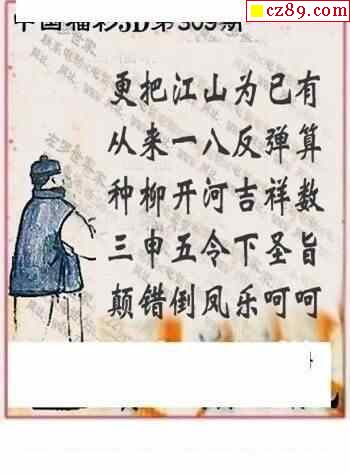 cz89.com
中国福彩3D第309期
更把江山为己有
从来一八反弹算
种柳开河吉祥数
三申五令下圣旨
颠错倒凤乐呵呵